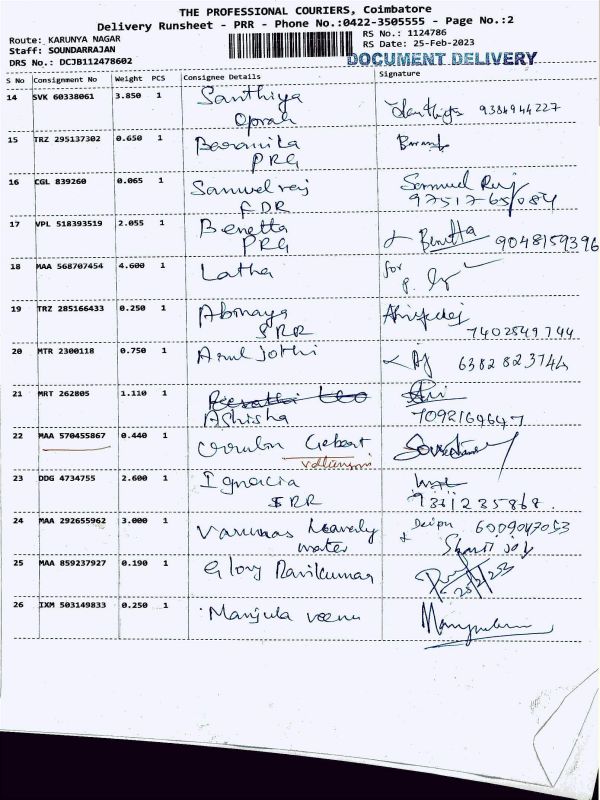 THE PROFESSIONAL COURIERS, Coimbatore
Delivery Runsheet - PRR - Phone No.:0422-3505555 - Page No.:2
Route: KARUNYA NAGAR
RS No.: 1124786
Staff: SOUNDARRAJAN
RS Date: 25-Feb-2023
DRS No.: DCJB112478602
DOCUMENT DELIVERY
S No Consignment No Weight PCS Consignee Details Signature
14 SVK 60338061 3.850 1 Santhiya
9384944227
15 TRZ 295137302 0.650 1 Baranika
PRG
16 CGL 839260 0.065 1 Samuel raj Samuel Raj
FDR 9751765084
17 VPL 518393519 2.055 1 Benetta Benetta 9048159396
PRG
18 MAA 568707454 4.600 1 Latha for
19 TRZ 285166433 0.250 1 Abinaya
SRR 7402549744
20 MTR 2300118 0.750 1 Arul jothi AJ 6382823744
21 MRT 262805 1.110 1
Ashisha 7092169647
22 MAA 570455867 0.440 1
23 DDG 4734755 2.600 1 Ignacia
SRR 9361235868
24 MAA 292655962 3.000 1 Varunas Heavenly 6009047053
water
25 MAA 859237927 0.190 1 Glory Ravikumar
26 IXM 503149833 0.250 1 Manjula veenu